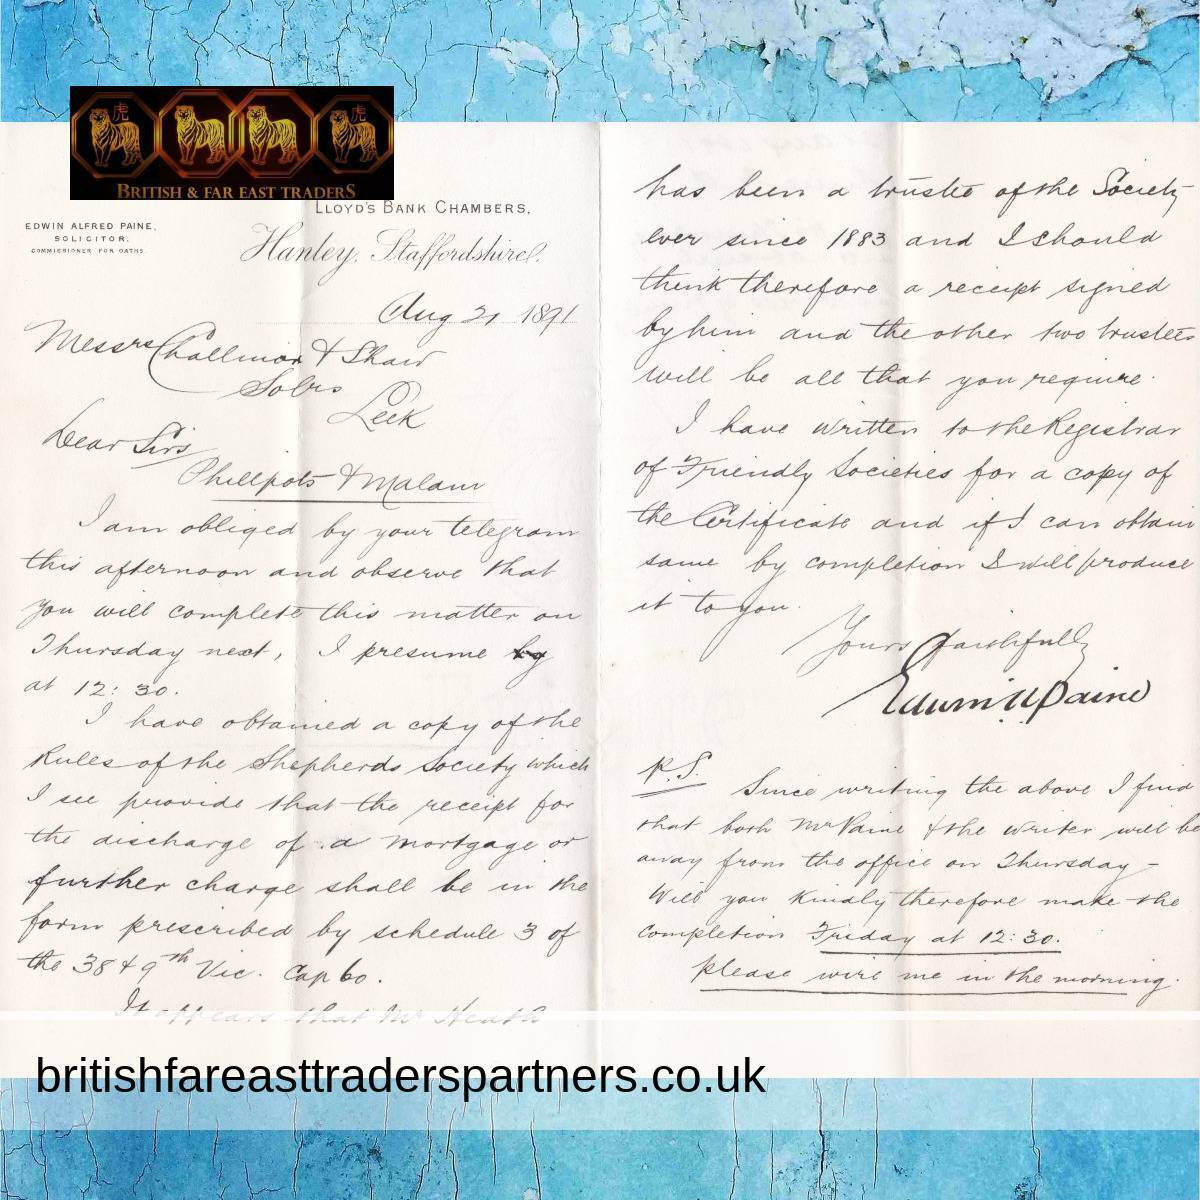 虎 虎
BRITISH & FAR EAST TRADERS
LLOYD'S BANK CHAMBERS,
EDWIN ALFRED PAINE,
SOLICITOR,
COMMISSIONER FOR OATHS.
Hanley, Staffordshire.
Aug 21 1891
Messrs Challinor & Shaw
Solrs
Leek
Dear Sirs
Phillpots & Malam
I am obliged by your telegram
this afternoon and observe that
you will complete this matter on
Thursday next, I presume
at 12:30.
I have obtained a copy of the
Rules of the Shepherds Society which
I see provide that the receipt for
the discharge of a mortgage or
further charge shall be in the
form prescribed by schedule 3 of
the 38 & 9th Vic. Cap 60.
It appears that Mr Heath
has been a trustee of the Society
ever since 1883 and I should
think therefore a receipt signed
by him and the other two trustees
will be all that you require.
I have written to the Registrar
of Friendly Societies for a copy of
the Certificate and if I can obtain
same by completion I will produce
it to you.
Yours faithfully
Edwin A Paine
P.S. Since writing the above I find
that both Mr Paine & the writer will be
away from the office on Thursday -
Will you kindly therefore make the
completion Friday at 12:30.
please wire me in the morning.
britishfareasttraderspartners.co.uk